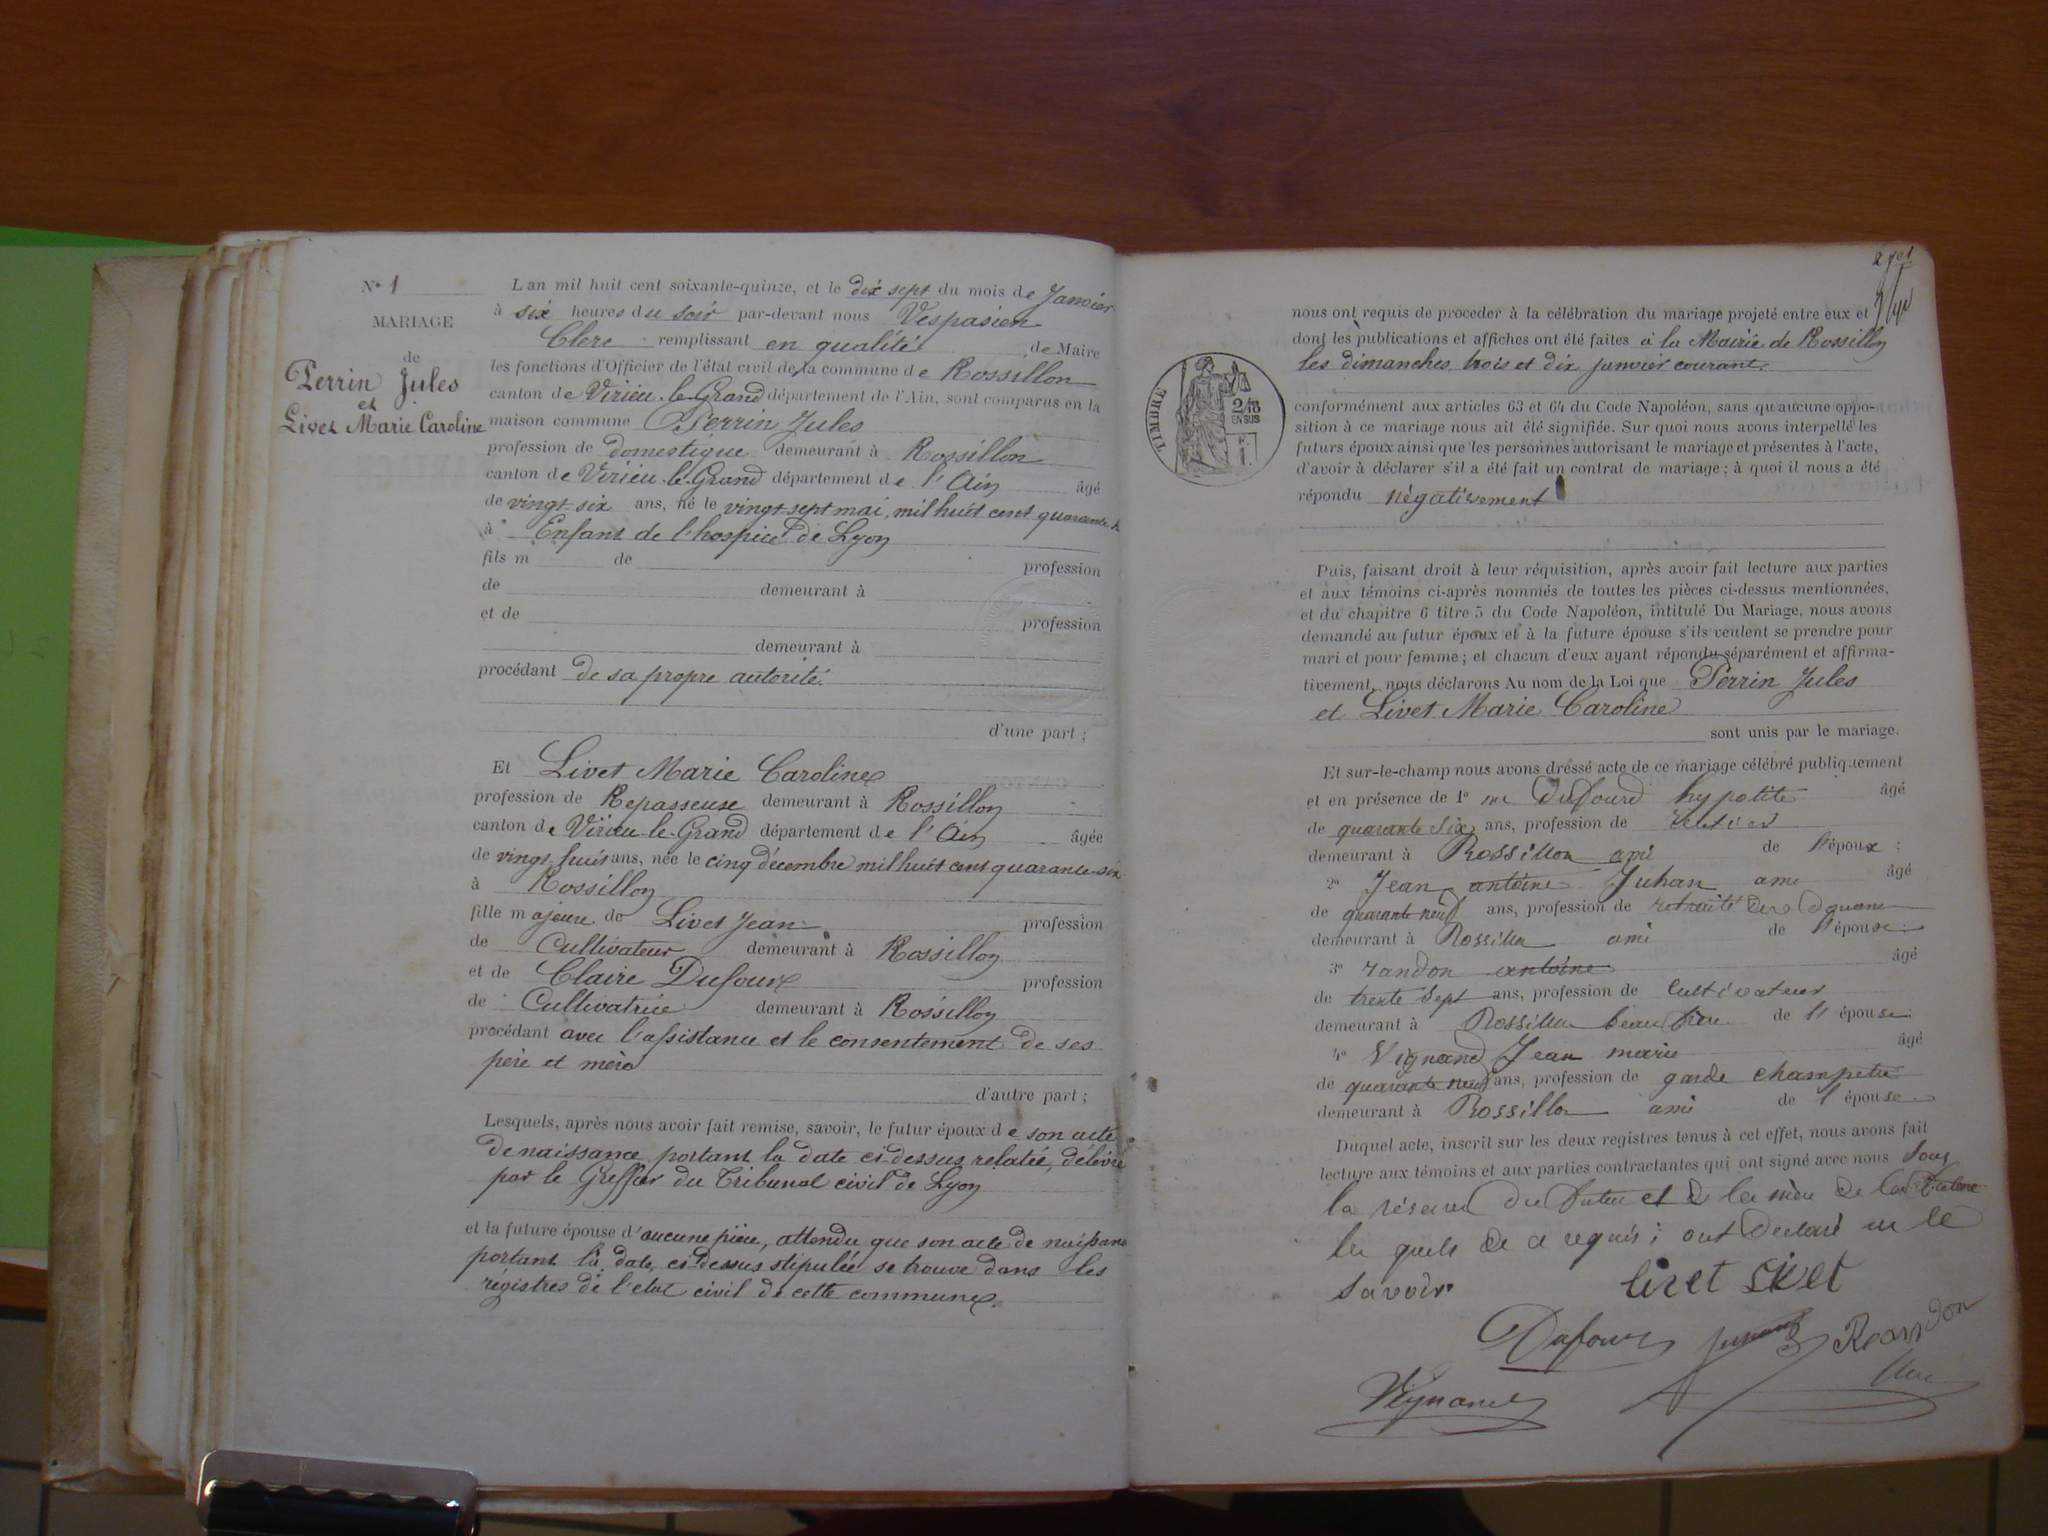 N° 1
MARIAGE
de
Perrin Jules
et
Livet Marie Caroline
L'an mil huit cent soixante-quinze, et le dix sept du mois de Janvier
à six heures du soir par-devant nous Vespasien
Clerc remplissant en qualité de Maire
les fonctions d'Officier de l'état civil de la commune de Rossillon
canton de Virieu-le-Grand département de l'Ain, sont comparus en la
maison commune Perrin Jules
profession de domestique demeurant à Rossillon
canton de Virieu-le-Grand département de l'Ain âgé
de vingt-six ans, né le vingt-sept mai, mil huit cent quarante-h
à Enfant de l'hospice de Lyon
fils m de profession
de demeurant à
et de profession
demeurant à
procédant de sa propre autorité.
d'une part ;
Et Livet Marie Caroline
profession de Repasseuse demeurant à Rossillon
canton de Virieu-le-Grand département de l'Ain âgée
de vingt-huit ans, née le cinq décembre mil huit cent quarante-six
à Rossillon
fille majeure de Livet Jean profession
de Cultivateur demeurant à Rossillon
et de Claire Dufour profession
de Cultivatrice demeurant à Rossillon
procédant avec l'assistance et le consentement de ses
père et mère
d'autre part ;
Lesquels, après nous avoir fait remise, savoir, le futur époux de son acte
de naissance portant la date ci-dessus relatée, délivré
par le Greffier du Tribunal civil de Lyon
et la future épouse d'aucune pièce, attendu que son acte de naissance
portant la date, ci-dessus stipulée se trouve dans les
régistres de l'état civil de cette commune.
nous ont requis de proceder à la célébration du mariage projeté entre eux et
dont les publications et affiches ont été faites à la Mairie de Rossillon
les dimanches trois et dix janvier courant.
TIMBRE
2/10
EN SUS
conformément aux articles 63 et 64 du Code Napoléon, sans qu'aucune oppo-
sition à ce mariage nous ait été signifiée. Sur quoi nous avons interpellé les
futurs époux ainsi que les personnes autorisant le mariage et présentes à l'acte,
d'avoir à déclarer s'il a été fait un contrat de mariage ; à quoi il nous a été
répondu négativement
Puis, faisant droit à leur réquisition, après avoir fait lecture aux parties
et aux témoins ci-après nommés de toutes les pièces ci-dessus mentionnées,
et du chapitre 6 titre 5 du Code Napoléon, intitulé Du Mariage, nous avons
demandé au futur époux et à la future épouse s'ils veulent se prendre pour
mari et pour femme ; et chacun d'eux ayant répondu séparément et affirma-
tivement, nous déclarons Au nom de la Loi que Perrin Jules
et Livet Marie Caroline
sont unis par le mariage.
Et sur-le-champ nous avons dréssé acte de ce mariage célébré publiquement
et en présence de 1° Dufourd hypolite âgé
de quarante six ans, profession de
demeurant à Rossillon ami de l'époux ;
2° Jean antoine Juhan ami âgé
de quarante neuf ans, profession de retraité des douane
demeurant à Rossillon ami de l'épouse ;
3° randon antoine âgé
de trente sept ans, profession de cultivateur
demeurant à Rossillon beau frère de l'épouse ;
4° Vignand Jean marie âgé
de quarante neuf ans, profession de garde champetre
demeurant à Rossillon ami de l'épouse
Duquel acte, inscrit sur les deux registres tenus à cet effet, nous avons fait
lecture aux témoins et aux parties contractantes qui ont signé avec nous sous
la réserve du futur et de la mère de la future
les quels de ce requis ; ont déclaré ne le
savoir
livet livet
Dufour Randon
Clerc
Vignand